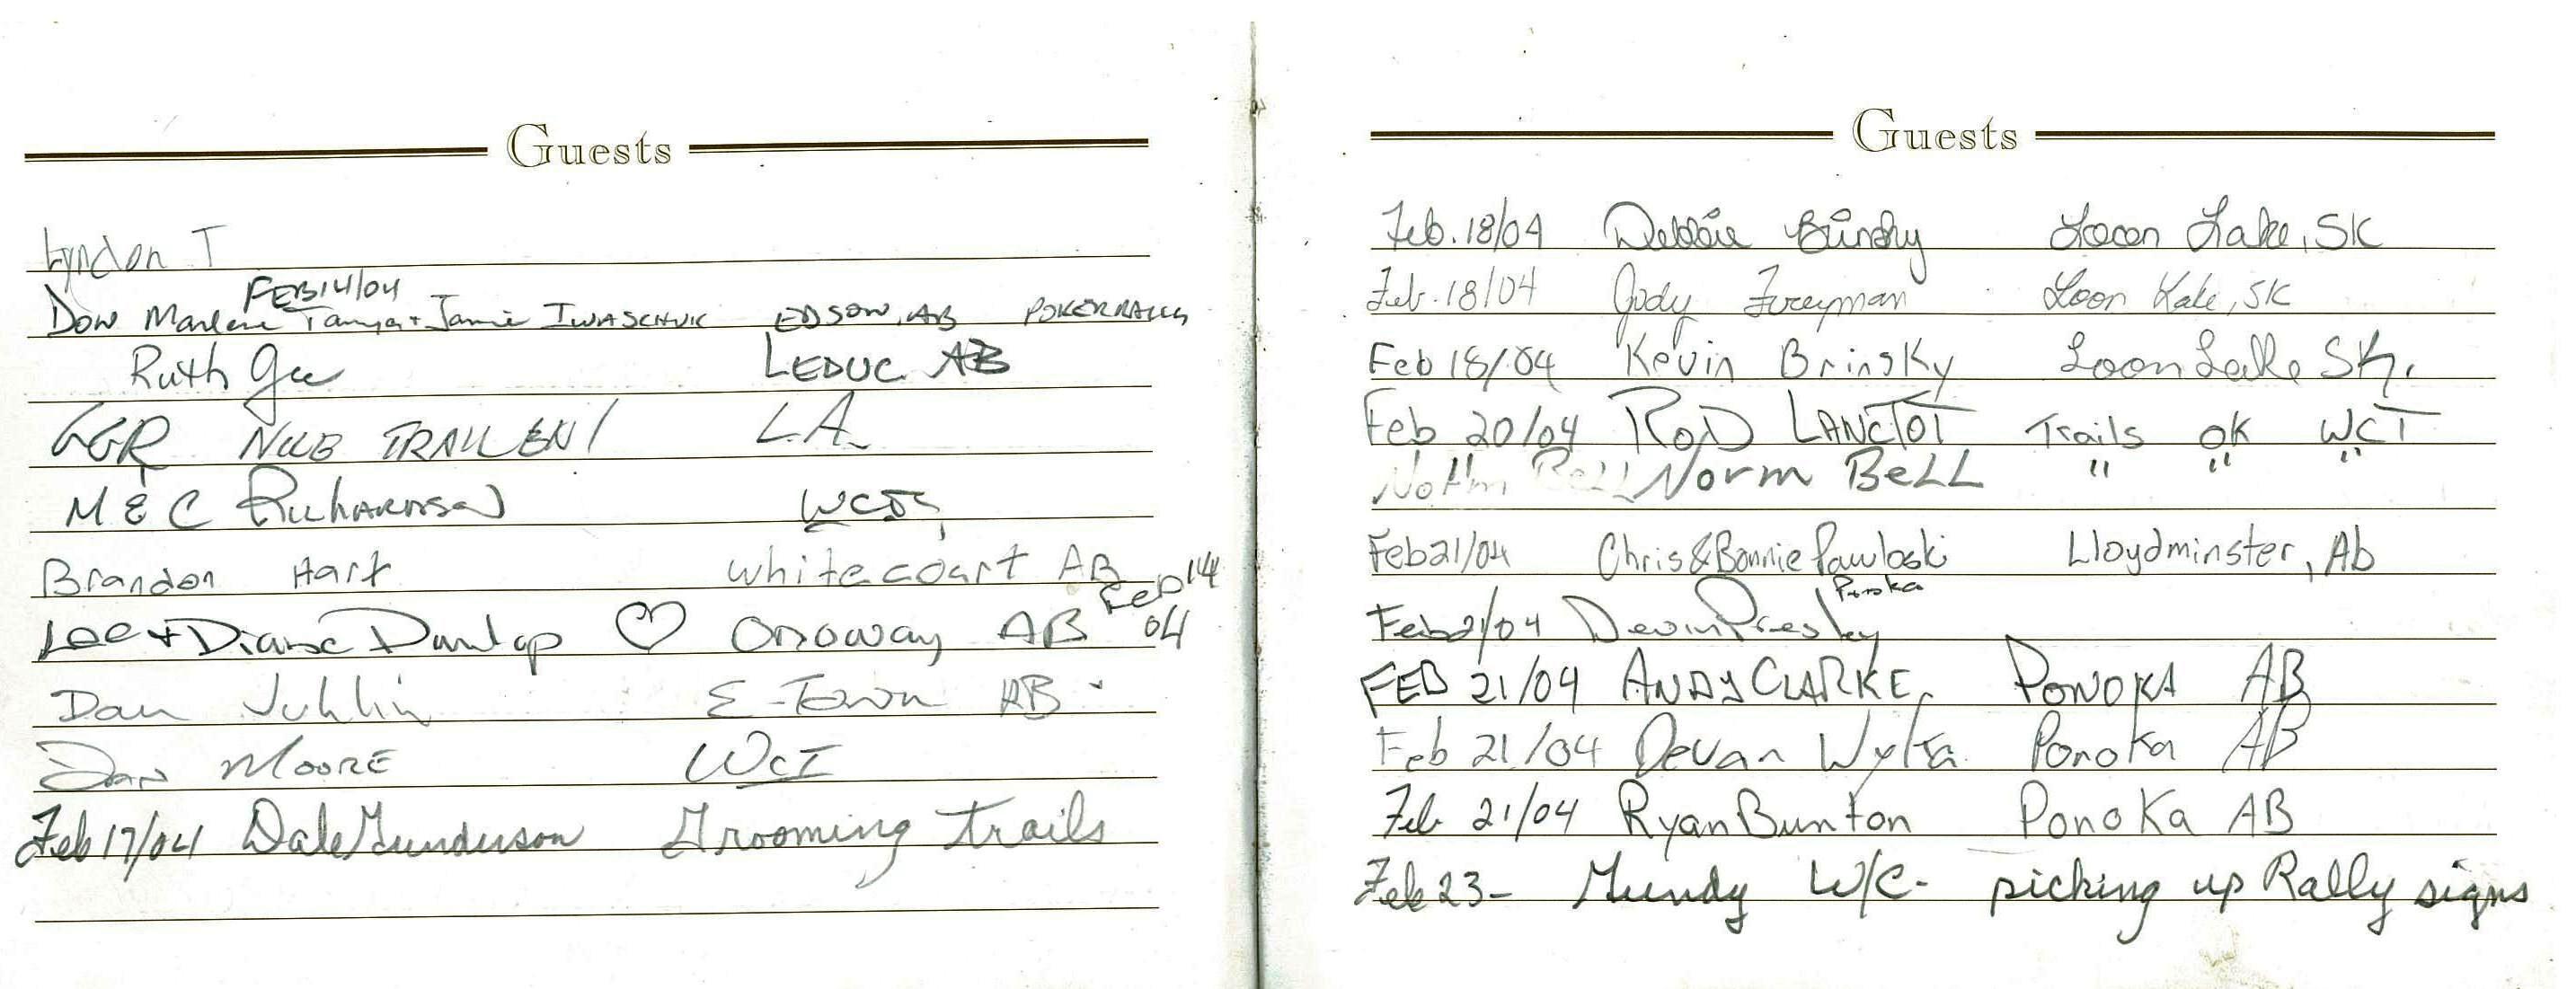 Guests
Lyndon T
FEB 14/04
Don Marlene Tanya + Jamie IWASCHUK EDSON, AB POKER RALLY
Ruth Gee LEDUC AB
L.A.
M & C RICHARDSON
Brandon Hart Whitecourt AB
Lee + Diane Dunlap ♡ Onoway AB Feb 14 04
Dan Juhlin E-Town AB
Dan MOORE WCT
Feb 17/04 Dale Gunderson Grooming trails
Guests
Feb. 18/04 Debbie Loon Lake, SK
Feb. 18/04 Jody Loon Lake, SK
Feb 18/04 Kevin Brinsky Loon Lake SK.
Feb 20/04 ROD LANCTOT Trails OK WCT
Norm Bell Norm BeLL " " "
Feb 21/04 Chris & Bonnie Pawloski Lloydminster, Ab
Ponoka
Feb 21/04 Devin Presley
FEB 21/04 ANDY CLARKE PONOKA AB
Feb 21/04 Devan Wylta Ponoka AB
Feb 21/04 Ryan Bunton PonoKa AB
Feb 23- Gundy W/C- picking up Rally signs